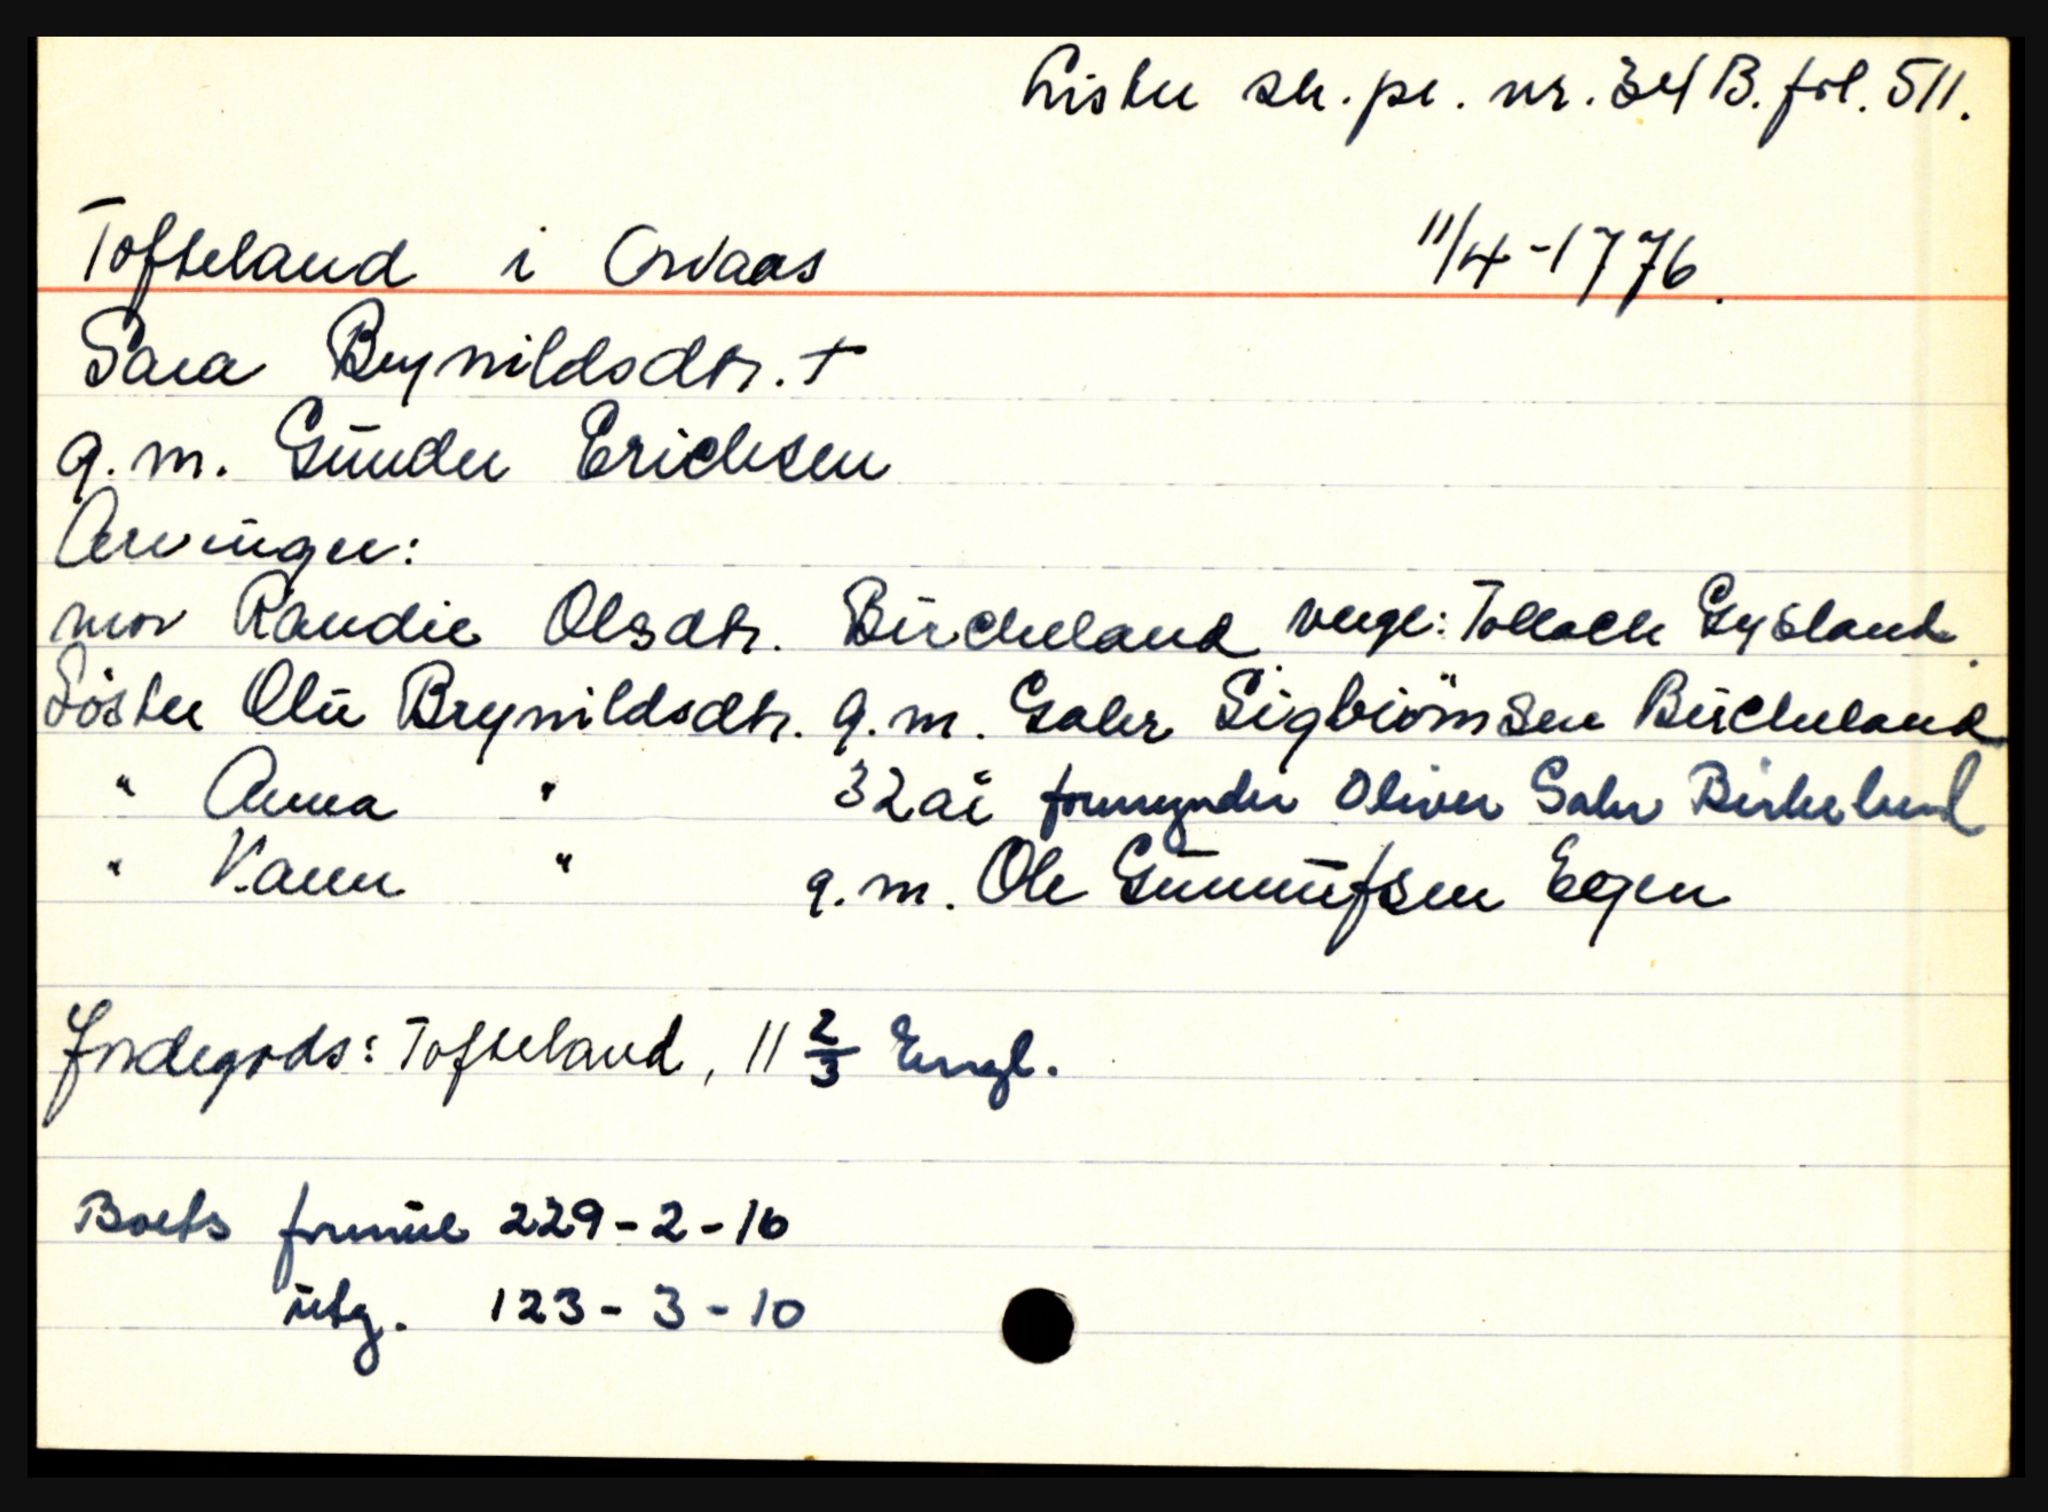 Lister sk.pr. nr. 34 B. fol. 511.
Tofteland i Qvaas 11/4-1776.
Sara Brynildsdtr. +
g.m. Gunder Erichsen
Arvinger:
mor Randie Olsdtr. Bircheland verge: Tollach Gysland.
Söster Olu Brynildsdtr. g.m. Gahr Sigbiörnsen Bircheland
" Anna " 32 år formynder Oliver Gahr Birkeland
" Karen " g.m. Ole Gunnufsen Eegen
Jordegods: Tofteland, 11 2/3 Engl.
Boets formue 229-2-16
utg. 123-3-10